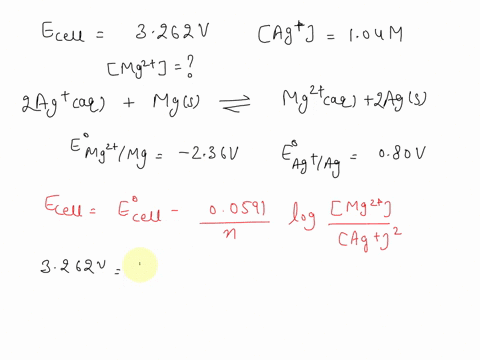 Ecell = 3.262V [Ag+] = 1.04M
[Mg2+] = ?
2Ag+(aq) + Mg(s) ⇌ Mg2+(aq) + 2Ag(s)
E°Mg2+/Mg = -2.36V E°Ag+/Ag = 0.80V
Ecell = E°cell - 0.0591/n log [Mg2+]/[Ag+]2
3.262V =